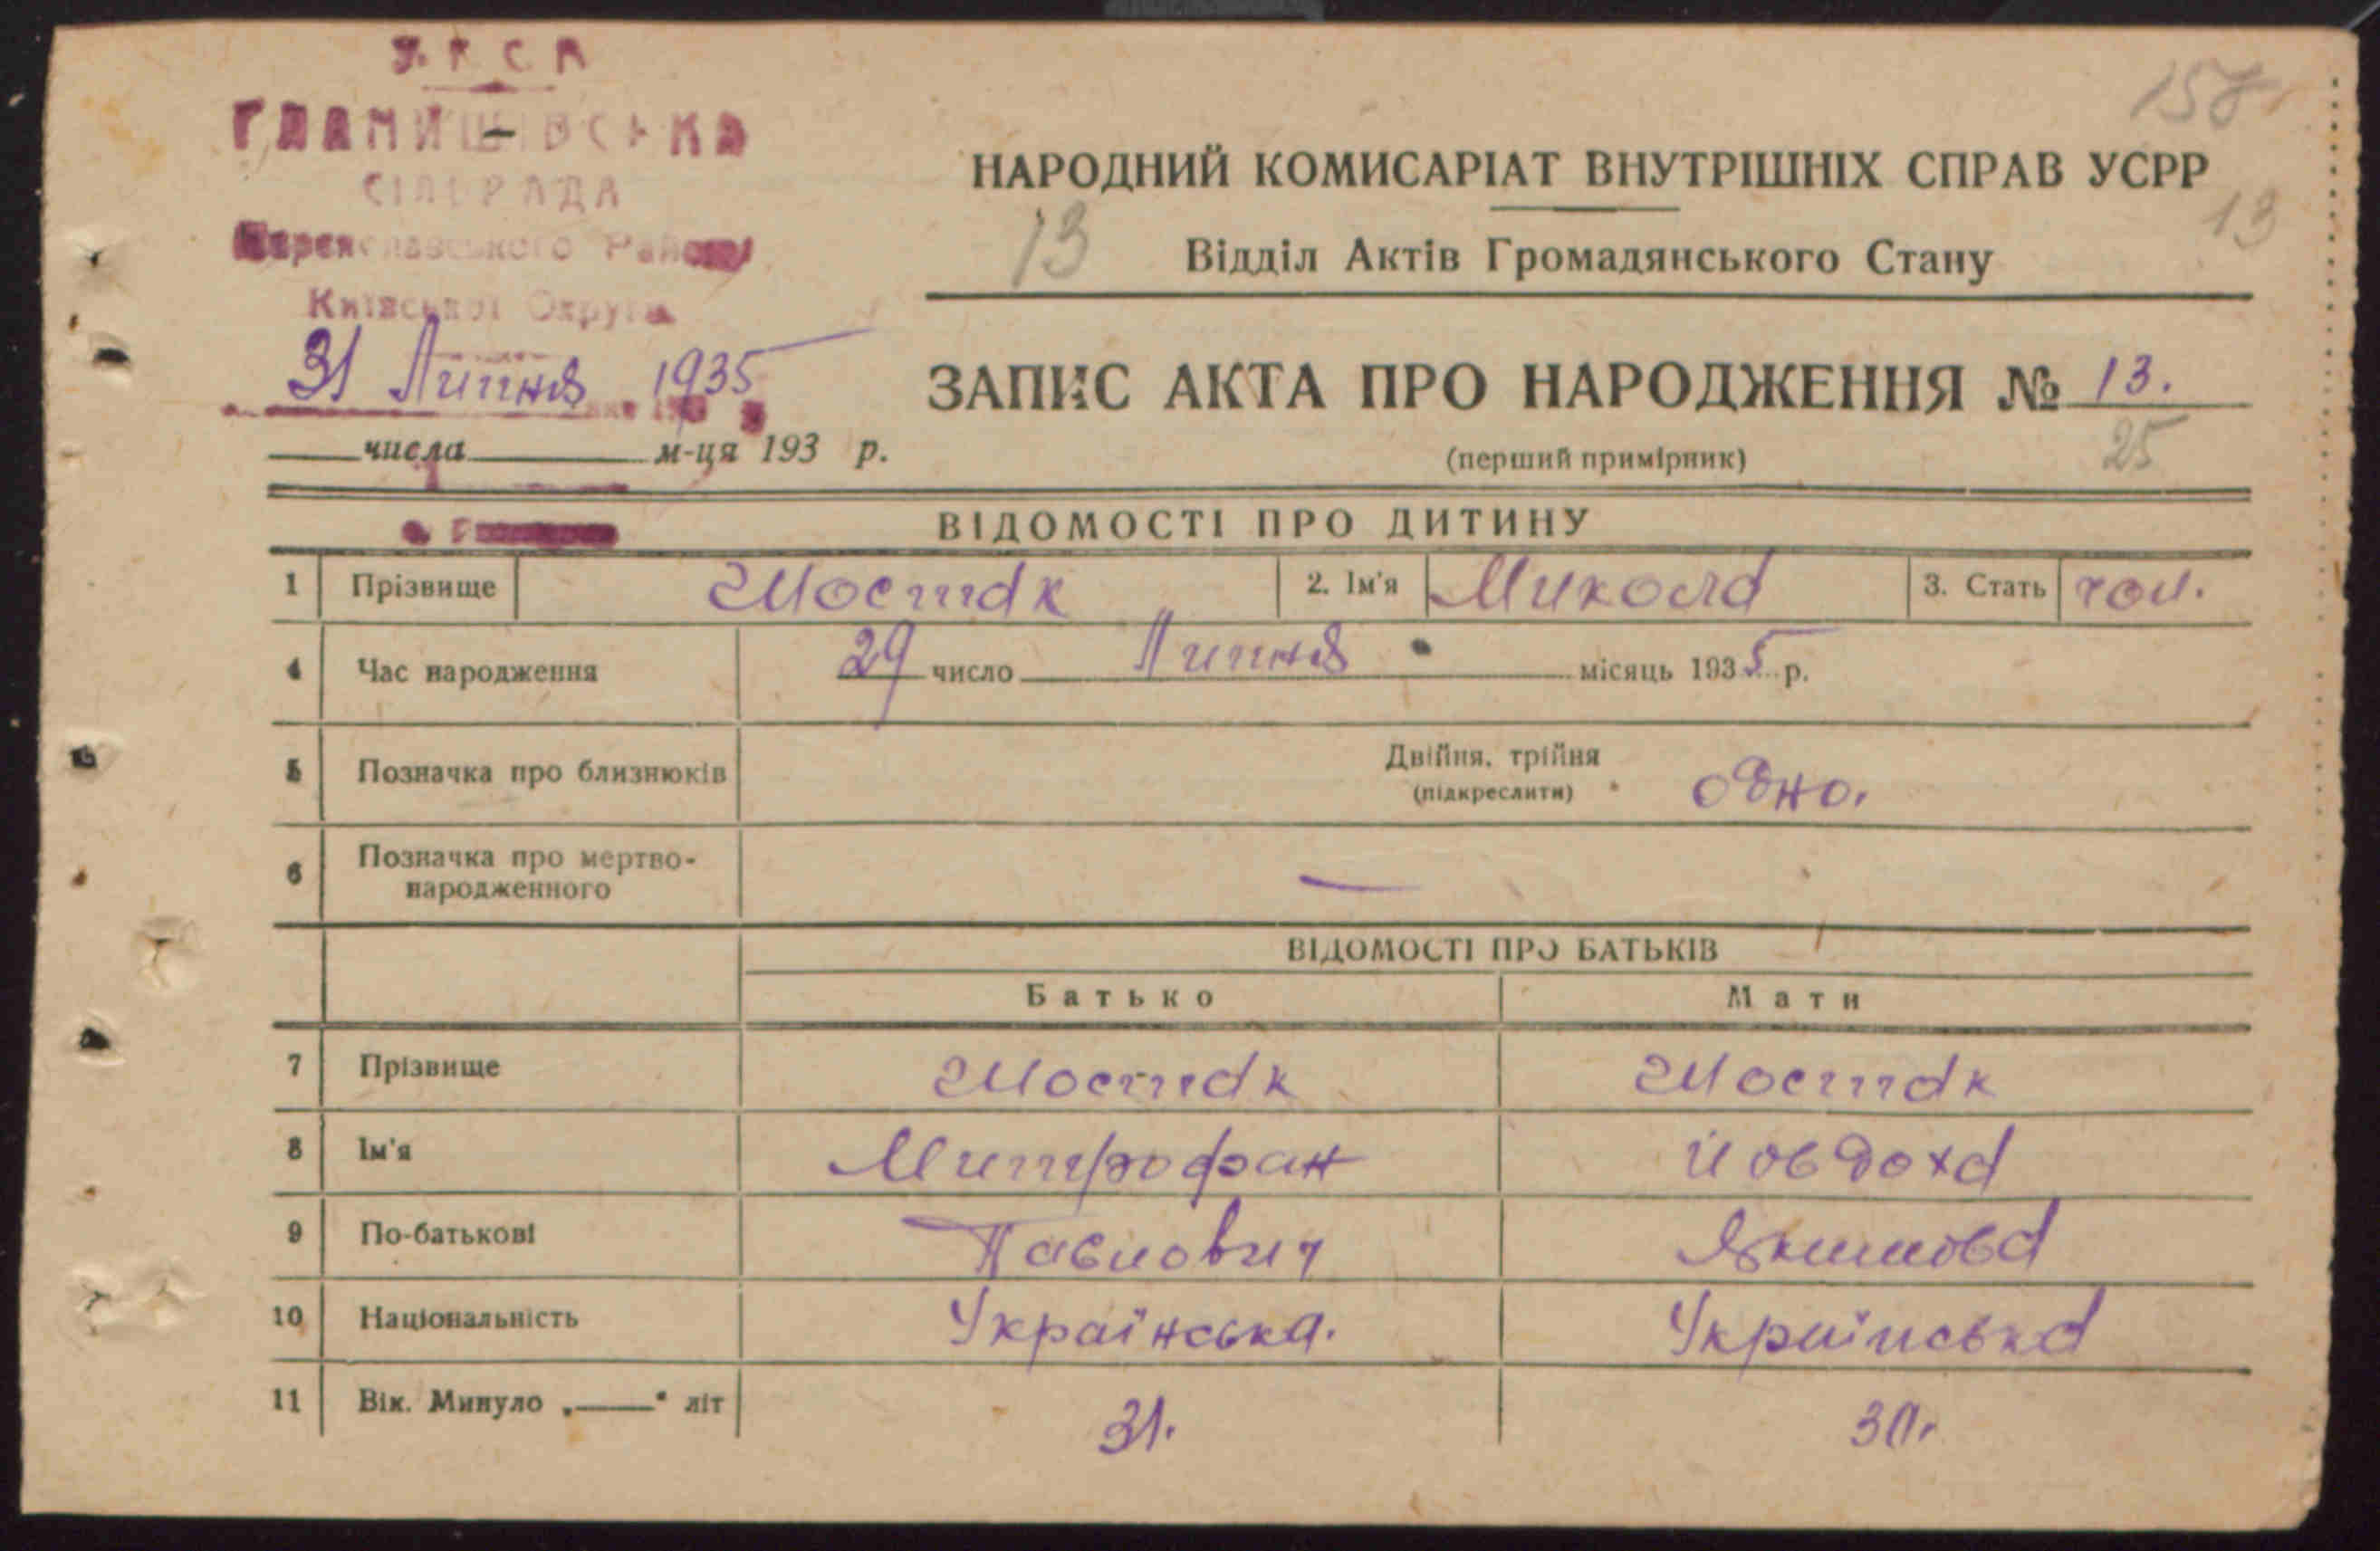 У.Р.С.Р.
ГЛАНИШІВСЬКА
СІЛЬРАДА
Переяславського Району
Київської Округи
31 Липня 1935
числа м-ця 193 р.
158
НАРОДНИЙ КОМИСАРІАТ ВНУТРІШНІХ СПРАВ УСРР
13 13
Відділ Актів Громадянського Стану
ЗАПИС АКТА ПРО НАРОДЖЕННЯ № 13.
(перший примірник) 25
ВІДОМОСТІ ПРО ДИТИНУ
1 Прізвище Шостак 2. Ім'я Микола 3. Стать чол.
4 Час народження 29 число Липня місяць 1935 р.
5 Позначка про близнюків Двійня, трійня (підкреслити) одно.
6 Позначка про мертво-
народженного —
ВІДОМОСТІ ПРО БАТЬКІВ
Батько Мати
7 Прізвище Шостак Шостак
8 Ім'я Митрофан Йовдоха
9 По-батькові Павлович Якимова
10 Національність Українська. Українська
11 Вік. Минуло „——" літ 31. 30.